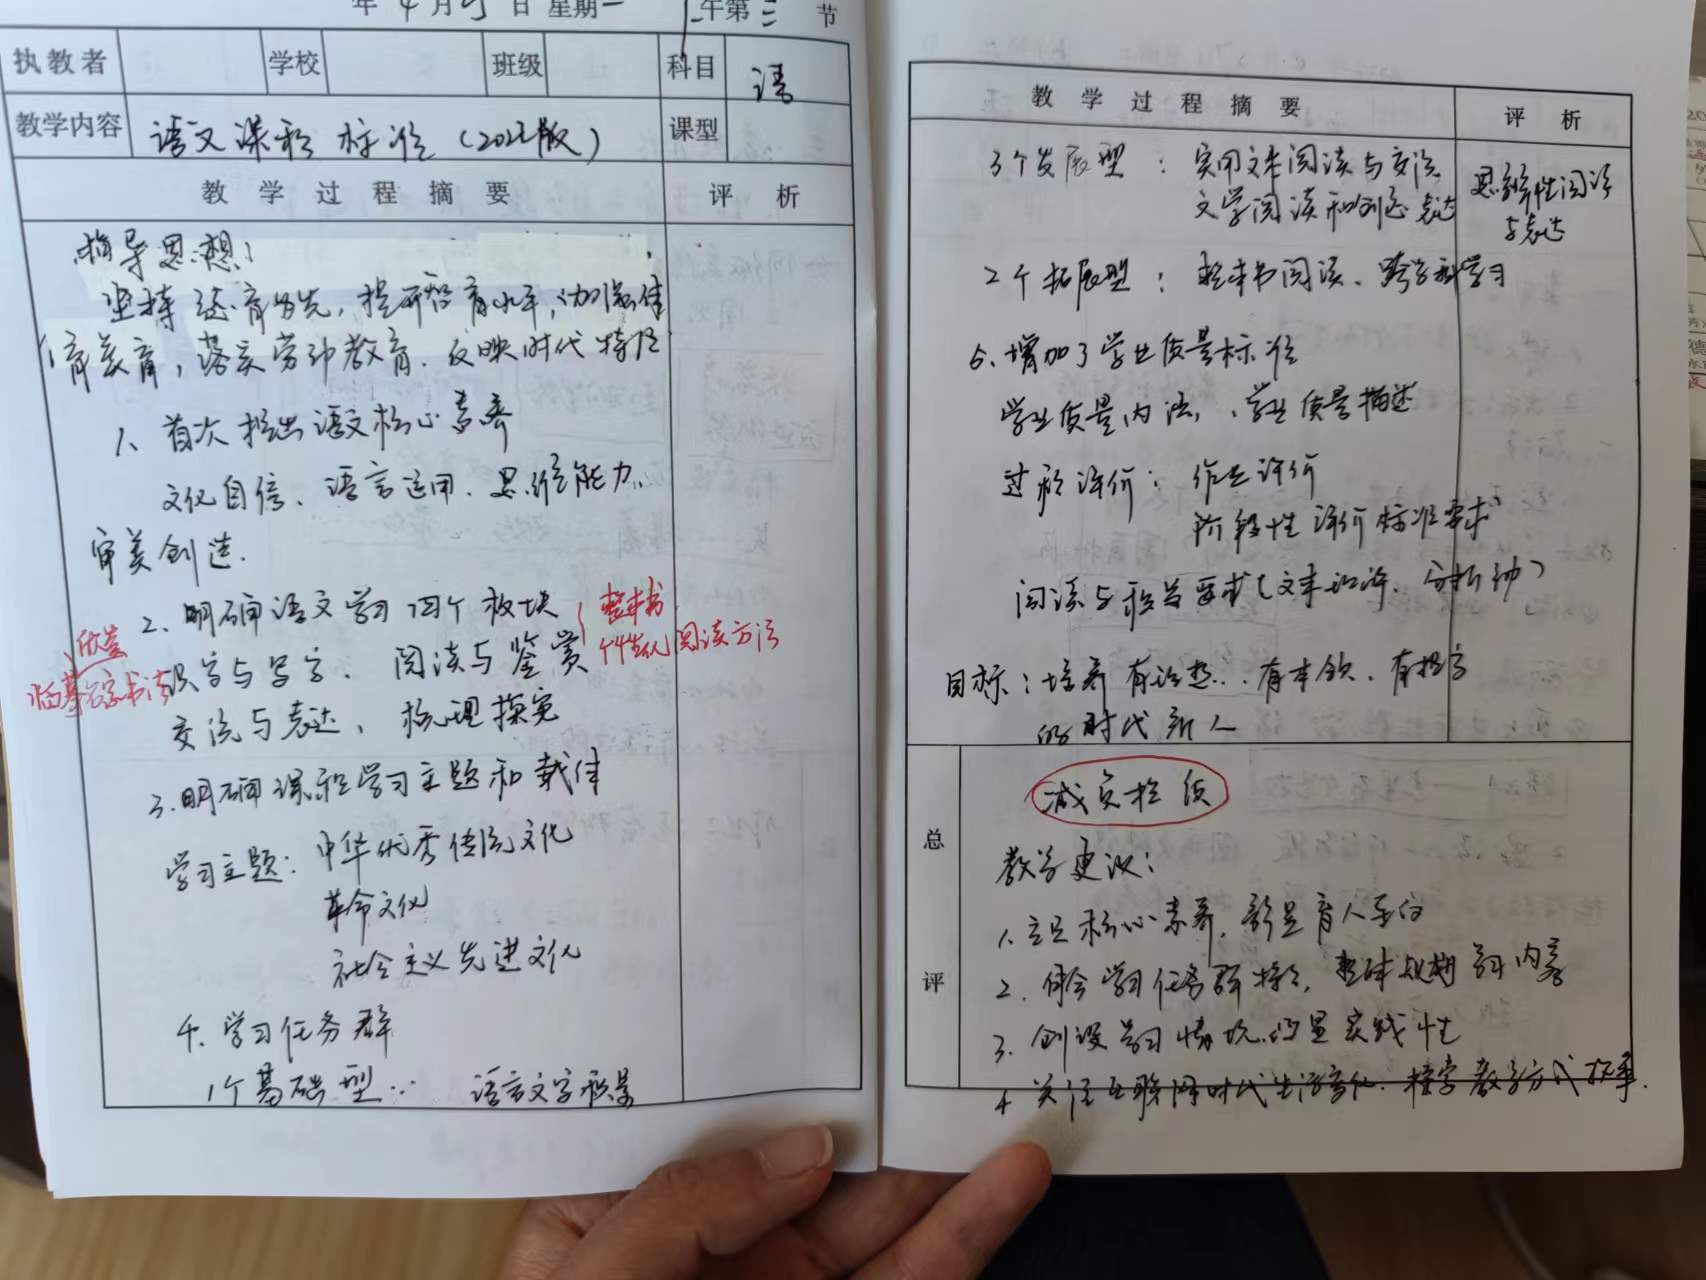 年 4 月 25 日 星期一 上午第三节
执教者 学校 班级 科目 语
教学内容 语文课程标准（2022版） 课型
教学过程摘要 评析
指导思想：
坚持德育为先，提升智育水平，加强体
育美育，落实劳动教育．反映时代特征
1、首次提出语文核心素养
文化自信、语言运用．思维能力．
审美创造．
2、明确语文学习四个板块 整本书
欣赏
识字与写字、阅读与鉴赏 个性化阅读方法
临摹 书法
交流与表达，梳理探究
3.明确课程学习主题和载体
学习主题：中华优秀传统文化
革命文化
社会主义先进文化
4．学习任务群
1个基础型： 语言文字积累
教学过程摘要 评析
3个发展型：实用文本阅读与交流 思辨性阅读
文学阅读和创意表达 与表达
2个拓展型：整本书阅读、跨学科学习
5．增加了学业质量标准
学业质量内涵，、学业质量描述
过程评价：作业评价
阶段性评价标准要求
阅读与积累要求（文本 ．分析 ）
目标：培养有理想、有本领、有担当
的时代新人
减负提质
总评
教学建议：
1．立足核心素养，彰显育人导向
2．体会学习任务群特点，整体规划学习内容
3．创设学习情境．凸显实践性
4 关注互联网时代生活变化．探索教学方式改革．